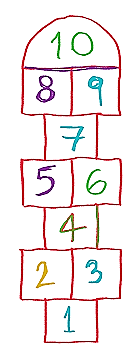 10
8 9
7
5 6
4
2 3
1